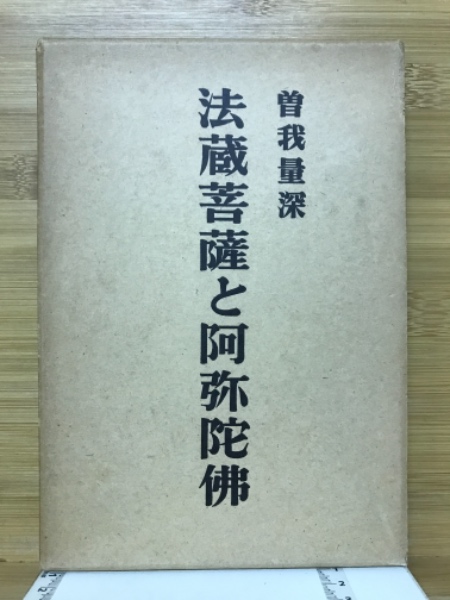 曽我量深
法蔵菩薩と阿弥陀佛